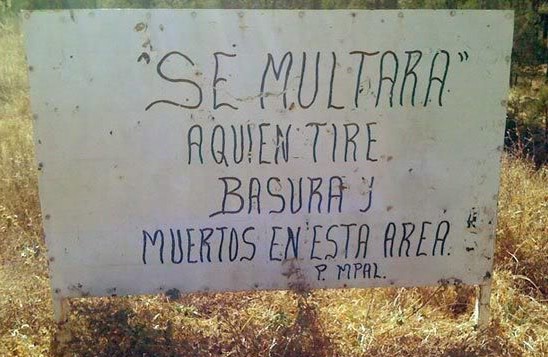 "SE MULTARA"
AQUIEN TIRE
BASURA Y
MUERTOS EN ESTA AREA.
P. MPAL.